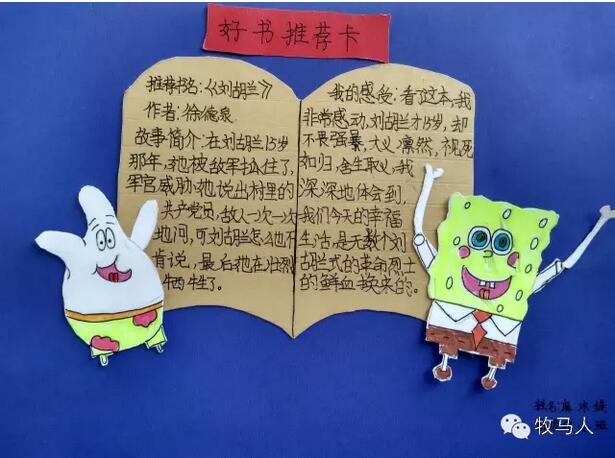 好书推荐卡
推荐书名:《刘胡兰》
作者:徐德泉
故事简介:在刘胡兰15岁
那年,她被敌军抓住了,
军官威胁她说出村里的
共产党员,敌人一次一次
地问,可刘胡兰怎么也不
肯说,最后她在壮烈
牺牲了。
我的感受:看了这本,我
非常感动,刘胡兰才15岁,却
不畏强暴,大义凛然,视死
如归,舍生取义,我
深深地体会到,
我们今天的幸福
生活,是无数个刘
胡兰式的革命烈士
的鲜血换来的。
姓名:
班
牧马人